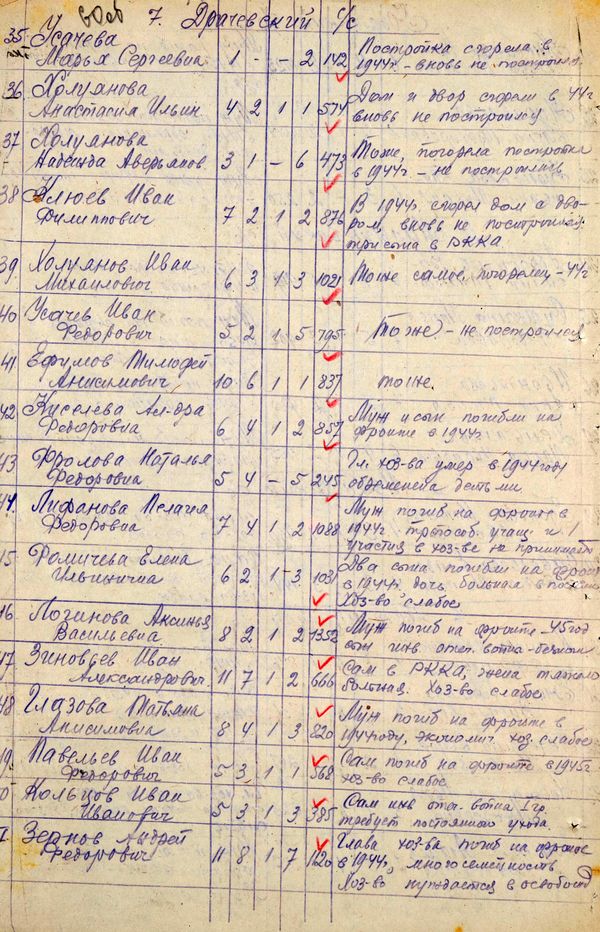 7. Драчевский с/с
35 Усачева
Марья Сергеевна 1 - - 2 142 Постройка сгорела в
1944г. - вновь не построилась
36 Холуянова Дом и двор сгорели в 44г
Анастасия Ильин 4 2 1 1 574 вновь не построилсу
37 Холуянова
Надежда Аверьянов 3 1 - 6 473 Тоже, погорела постройка
в 1944г - не построились
38 Клюев Иван В 1944г сгорел дом с дво-
Филиппович 7 2 1 2 876 ром, вновь не построился,
три сына в РККА
39 Холуянов Иван
Михаилович 6 3 1 3 1021 То же самое, погорелец - 44г
40 Усачев Иван
Федорович 5 2 1 5 795 То же - не построился
41 Ефимов Тимофей
Анисимович 10 6 1 1 837 то же.
42 Киселева Ал-дра Муж и сын погибли на
Федоровна 6 4 1 2 857 фронте в 1944г.
43 Фролова Наталья Гл. хоз-ва умер в 1944 году
Федоровна 5 4 - 5 245 обременена детьми
44. Лифанова Пелагея Муж погиб на фронте в
Федоровна 7 4 1 2 1088 1944г. учащ. и
участия в хоз-ве не принимает
45 Фомичева Елена Два сына погибли на фрон
Ильинична 6 2 1 3 1031 в 1944г. дочь больная в
Хоз-во слабое
46 Логинова Аксинья Муж погиб на фронте - 45 год
Васильевна 8 2 1 2 1352 сын инв отеч. войны
47 Зиновьев Иван Сам в РККА, жена тяжело
Александрович. 11 7 1 2 666 больная. Хоз-во слабое
48 Глазова Татьяна Муж погиб на фронте в
Анисимовна 8 4 1 3 820 1944 году, экономич. хоз. слабое
49. Павельев Иван Сам погиб на фронте в 1945г
Федорович 5 3 1 1 568 хоз-во слабое
50 Кольцов Иван Сам инв отеч. войны 1 гр.
Иванович 5 3 1 3 385 требует постоянного ухода
Зернов Андрей Глава хоз-ва погиб на фронте
Федорович 11 8 1 7 1120 в 1944г, многосемейность
Хоз-во нуждается в освобожд